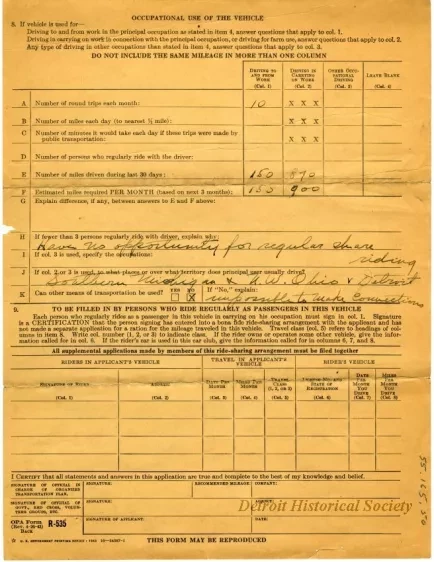 OCCUPATIONAL USE OF THE VEHICLE
8. If vehicle is used for—
Driving to and from work in the principal occupation as stated in item 4, answer questions that apply to col. 1.
Driving in carrying on work in connection with the principal occupation, or driving for farm use, answer questions that apply to col. 2.
Any type of driving in other occupations than stated in item 4, answer questions that apply to col. 3.
DO NOT INCLUDE THE SAME MILEAGE IN MORE THAN ONE COLUMN
DRIVING TO AND FROM WORK (Col. 1) DRIVING IN CARRYING ON WORK (Col. 2) OTHER OCCUPATIONAL DRIVING (Col. 3) LEAVE BLANK (Col. 4)
A Number of round trips each month: 10 X X X
B Number of miles each day (to nearest ½ mile): X X X
C Number of minutes it would take each day if these trips were made by
public transportation: X X X
D Number of persons who regularly ride with the driver:
E Number of miles driven during last 30 days: 150 870
F Estimated miles required PER MONTH (based on next 3 months): 150 900
G Explain difference, if any, between answers to E and F above:
H If fewer than 3 persons regularly ride with driver, explain why:
Have no opportunity for regular share
riding
I If col. 3 is used, specify the occupations:
J If col. 2 or 3 is used, to what places or over what territory does principal user usually drive?
Southern Michigan & N.W. Ohio & Detroit
K Can other means of transportation be used? YES NO X If "No," explain: impossible to make connections
9. TO BE FILLED IN BY PERSONS WHO RIDE REGULARLY AS PASSENGERS IN THIS VEHICLE
Each person who regularly rides as a passenger to this vehicle in carrying on his occupation must sign in col. 1. Signature
is a CERTIFICATION that the person signing has entered into a bona fide ride-sharing arrangement with the applicant and has
not made a separate application for a ration for the mileage traveled in this vehicle. Travel class (col. 5) refers to headings of col-
umns in item 8. Write col. number (1, 2, or 3) to indicate class. If the rider owns or operates some other vehicle, give the infor-
mation called for in col. 6. If the rider's car is used in this car club, give the information called for in columns 6, 7, and 8.
All supplemental applications made by members of this ride-sharing arrangement must be filed together
RIDERS IN APPLICANT'S VEHICLE TRAVEL IN APPLICANT'S VEHICLE RIDER'S VEHICLE
SIGNATURE OF RIDER (Col. 1) ADDRESS (Col. 2) DAYS PER MONTH (Col. 3) MILES PER MONTH (Col. 4) TRAVEL CLASS (1, 2, or 3) (Col. 5) LICENSE NO. AND STATE OF REGISTRATION (Col. 6) DAYS PER MONTH YOU DRIVE (Col. 7) MILES PER MONTH YOU DRIVE (Col. 8)
I CERTIFY that all statements and answers in this application are true and complete to the best of my knowledge and belief.
SIGNATURE OF OFFICIAL IN CHARGE OF ORGANIZED TRANSPORTATION PLAN. SIGNATURE: RECOMMENDED MILEAGE: COMPANY:
SIGNATURE OF OFFICIAL OF GOVT., RED CROSS, VOLUNTEER GROUPS, ETC. SIGNATURE: AGENCY:
OPA Form R-535
Back
SIGNATURE OF APPLICANT. DATE:
THIS FORM MAY BE REPRODUCED
Detroit Historical Society